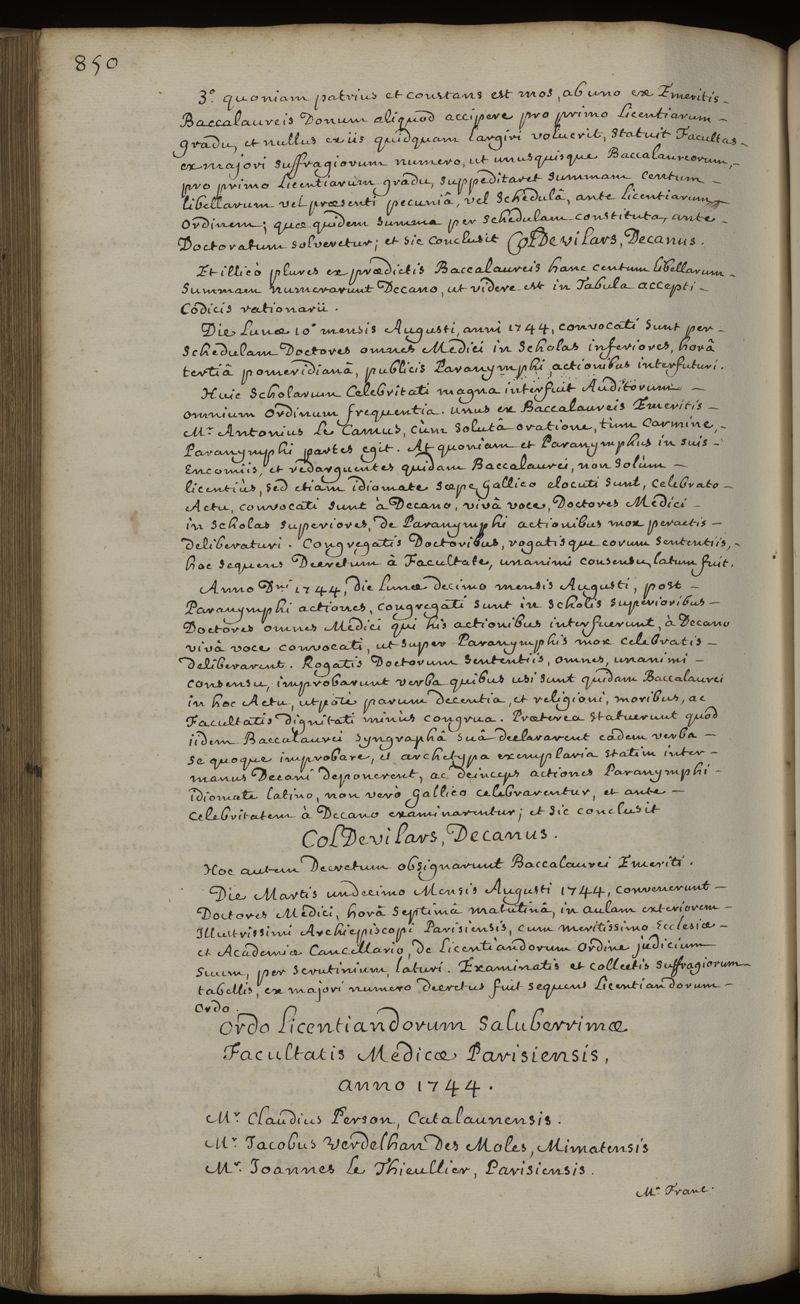 850
3.° quoniam patrius et constans est mos, ab uno ex Emeritis -
Baccalaureis Donum aliquod accipere pro primo Licentiarum -
gradu, et nullus ex iis quidquam largiri voluerit, Statuit Facultas -
ex majori Suffragiorum numero, ut unusquisque Baccalaureorum, -
pro primo Licentiarum gradu, Suppeditaret Summam Centum -
libellarum vel præsenti pecuniâ, vel Schedulâ, ante Licentiarum -
Ordinem; quæ quidem Summa per Schedulam constituta, ante -
Doctoratum Solveretur; et Sic Conclusit ColDevilars, Decanus.
Et illicò plures ex prædictis Baccalaureis hanc centum libellarum -
Summam numerarunt Decano, ut videre est in Tabula accepti -
Codicis rationarii.
Die Lunæ 10.ª mensis Augusti, anni 1744, convocati Sunt per -
Schedulam Doctores omnes Medici in Scholas inferiores, horâ
tertiâ pomeridianâ, publicis Paranymphi actionibus interfuturi.
Huic Scholarum Celebritati magna interfuit Auditorum -
omnium Ordinum frequentia. Unus ex Baccalaureis Emeritis -
M.r Antonius Le Camus, cùm Solutâ oratione, tùm Carmine, -
Paranymphi partes egit. At quoniam et Paranymphus in suis -
Encomiis, et redarguentes quidam Baccalaurei, non Solùm -
licentiùs, Sed etiam idiomate Sæpe Gallico elocuti Sunt, Celebrato -
Actu, convocati Sunt à Decano, vivâ voce, Doctores Medici -
in Scholas Superiores, de Paranymphi actionibus mox peractis -
deliberaturi. Congregatis Doctoribus, rogatisque eorum Sententiis, -
hoc Sequens Decretum â Facultate, unanimi consensu, latum fuit.
Anno D.ni 1744, die Lunæ decimo mensis Augusti, post -
Paranymphi actiones, congregati Sunt in Scholis Superioribus -
Doctores omnes Medici qui his actionibus interfuerunt, à Decano
vivâ voce convocati, ut Super Paranymphis mox celebratis -
deliberarent. Rogatis Doctorum Sententiis, omnes, unanimi -
consensu, improbarunt verba quibus usi Sunt quidam Baccalaurei
in hoc Actu, utpotè parum decentia, et religioni, moribus, ac
Facultatis Dignitati minùs congrua. Præterea Statuerunt quod
iidem Baccalaurei Syngraphâ Suâ declararent eadem verba -
Se quoque improbare, et archetypa exemplaria Statim inter -
manus Decani deponerent, ac deinceps actiones Paranymphi -
idiomate latino, non verò gallico celebrarentur, et ante -
Celebritatem à Decano examinarentur; et Sic conclusit
ColDevilars, Decanus.
Hoc autem Decretum obsignarunt Baccalaurei Emeriti.
Die Martis undecimo Mensis Augusti 1744, convenerunt -
Doctores Medici, horâ Septimâ matutinâ, in aulam exteriorem -
Illustrissimi Archiepiscopi Parisiensis, cum meritissimo Ecclesiæ -
et Academiæ Cancellario, de Licentiandorum Ordine judicium
Suum, per Scrutinium, laturi. Examinatis et collectis Suffragiorum
tabellis, ex majori numero decretus fuit sequens Licentiandorum -
Ordo.
Ordo Licentiandorum Saluberrimæ
Facultatis Medicæ Parisiensis,
anno 1744.
M.r Claudius Person, Catalaunensis.
M.r Jacobus Verdelhan Des Moles, Mimatensis
M.r Joannes Le Thieullier, Parisiensis.
M.r Franc.